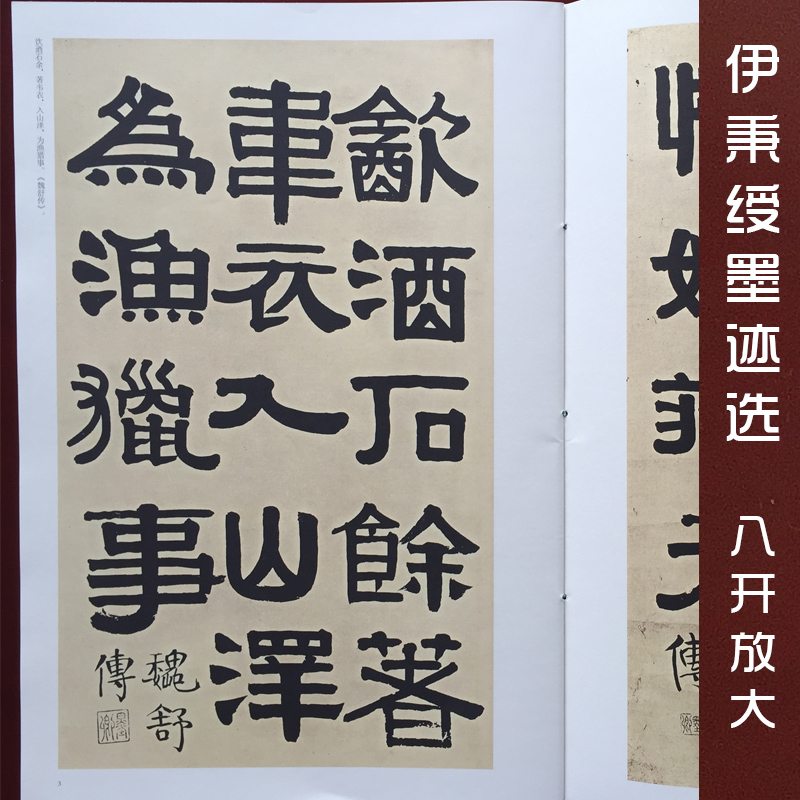 饮酒石余，著韦衣，入山泽，为渔猎事。《魏舒传》。
㱃酒石餘著
韋衣入山澤
為漁獵事
魏舒
傳
墨卿
3
伊秉绶墨迹选 八开放大